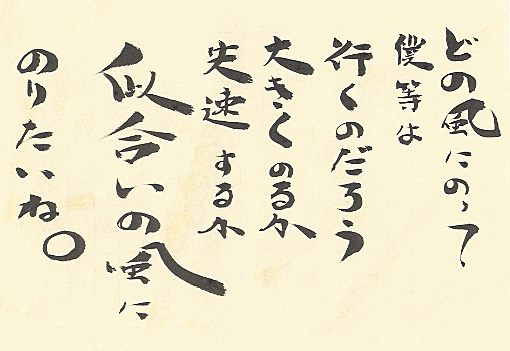 どの風にのって
僕等は
行くのだろう
大きくのるか
失速するか
似合いの風に
のりたいね。